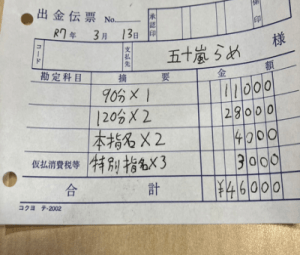 出金伝票 No.
承認印 係印
R7年 3月 13日
コード 支払先 五十嵐らめ 様
勘定科目 摘要 金額
90分×1 11000
120分×2 28000
本指名×2 4000
仮払消費税等 特別指名×3 3000
合計 ¥46000
コクヨ テ-2002